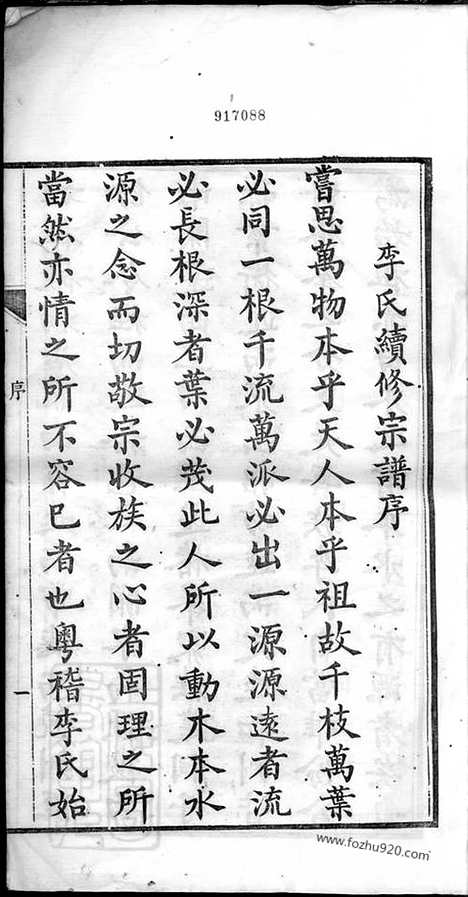 917088
李氏續修宗譜序
嘗思萬物本乎天人本乎祖故千枝萬葉
必同一根千流萬派必出一源源遠者流
必長根深者葉必茂此人所以動木本水
源之念而切敬宗收族之心者固理之所
當然亦情之所不容已者也粵稽李氏始
序
一
www.fozhu920.com